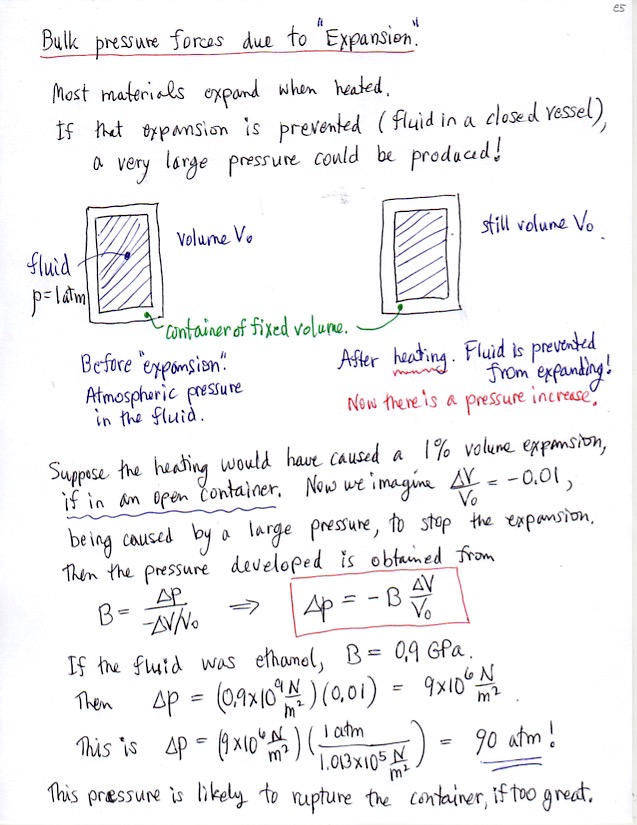 e5
Bulk pressure forces due to "Expansion".
Most materials expand when heated.
If that expansion is prevented (fluid in a closed vessel),
a very large pressure could be produced!
fluid
p=1atm
volume V₀
still volume V₀.
container of fixed volume.
Before "expansion".
Atmospheric pressure
in the fluid.
After heating. Fluid is prevented
from expanding!
Now there is a pressure increase.
Suppose the heating would have caused a 1% volume expansion,
if in an open container. Now we imagine ΔV/V₀ = -0.01,
being caused by a large pressure, to stop the expansion.
Then the pressure developed is obtained from
B = Δp/(-ΔV/V₀) ⇒ Δp = -B ΔV/V₀
If the fluid was ethanol, B = 0.9 GPa.
Then Δp = (0.9×10⁹ N/m²)(0.01) = 9×10⁶ N/m².
This is Δp = (9×10⁶ N/m²)(1 atm/1.013×10⁵ N/m²) = 90 atm!
This pressure is likely to rupture the container, if too great.